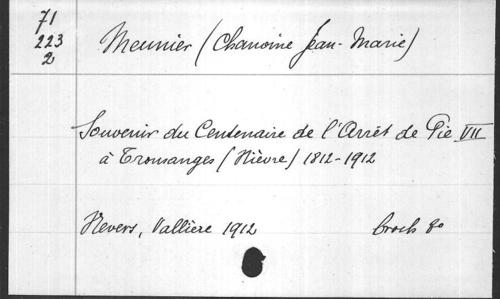 71
223
2
Meunier (Chanoine Jean-Marie)
Souvenir du Centenaire de l'Arrêt de Pie VII
à Tronsanges (Nièvre) 1812-1912
Nevers, Vallière 1912
broch 8o